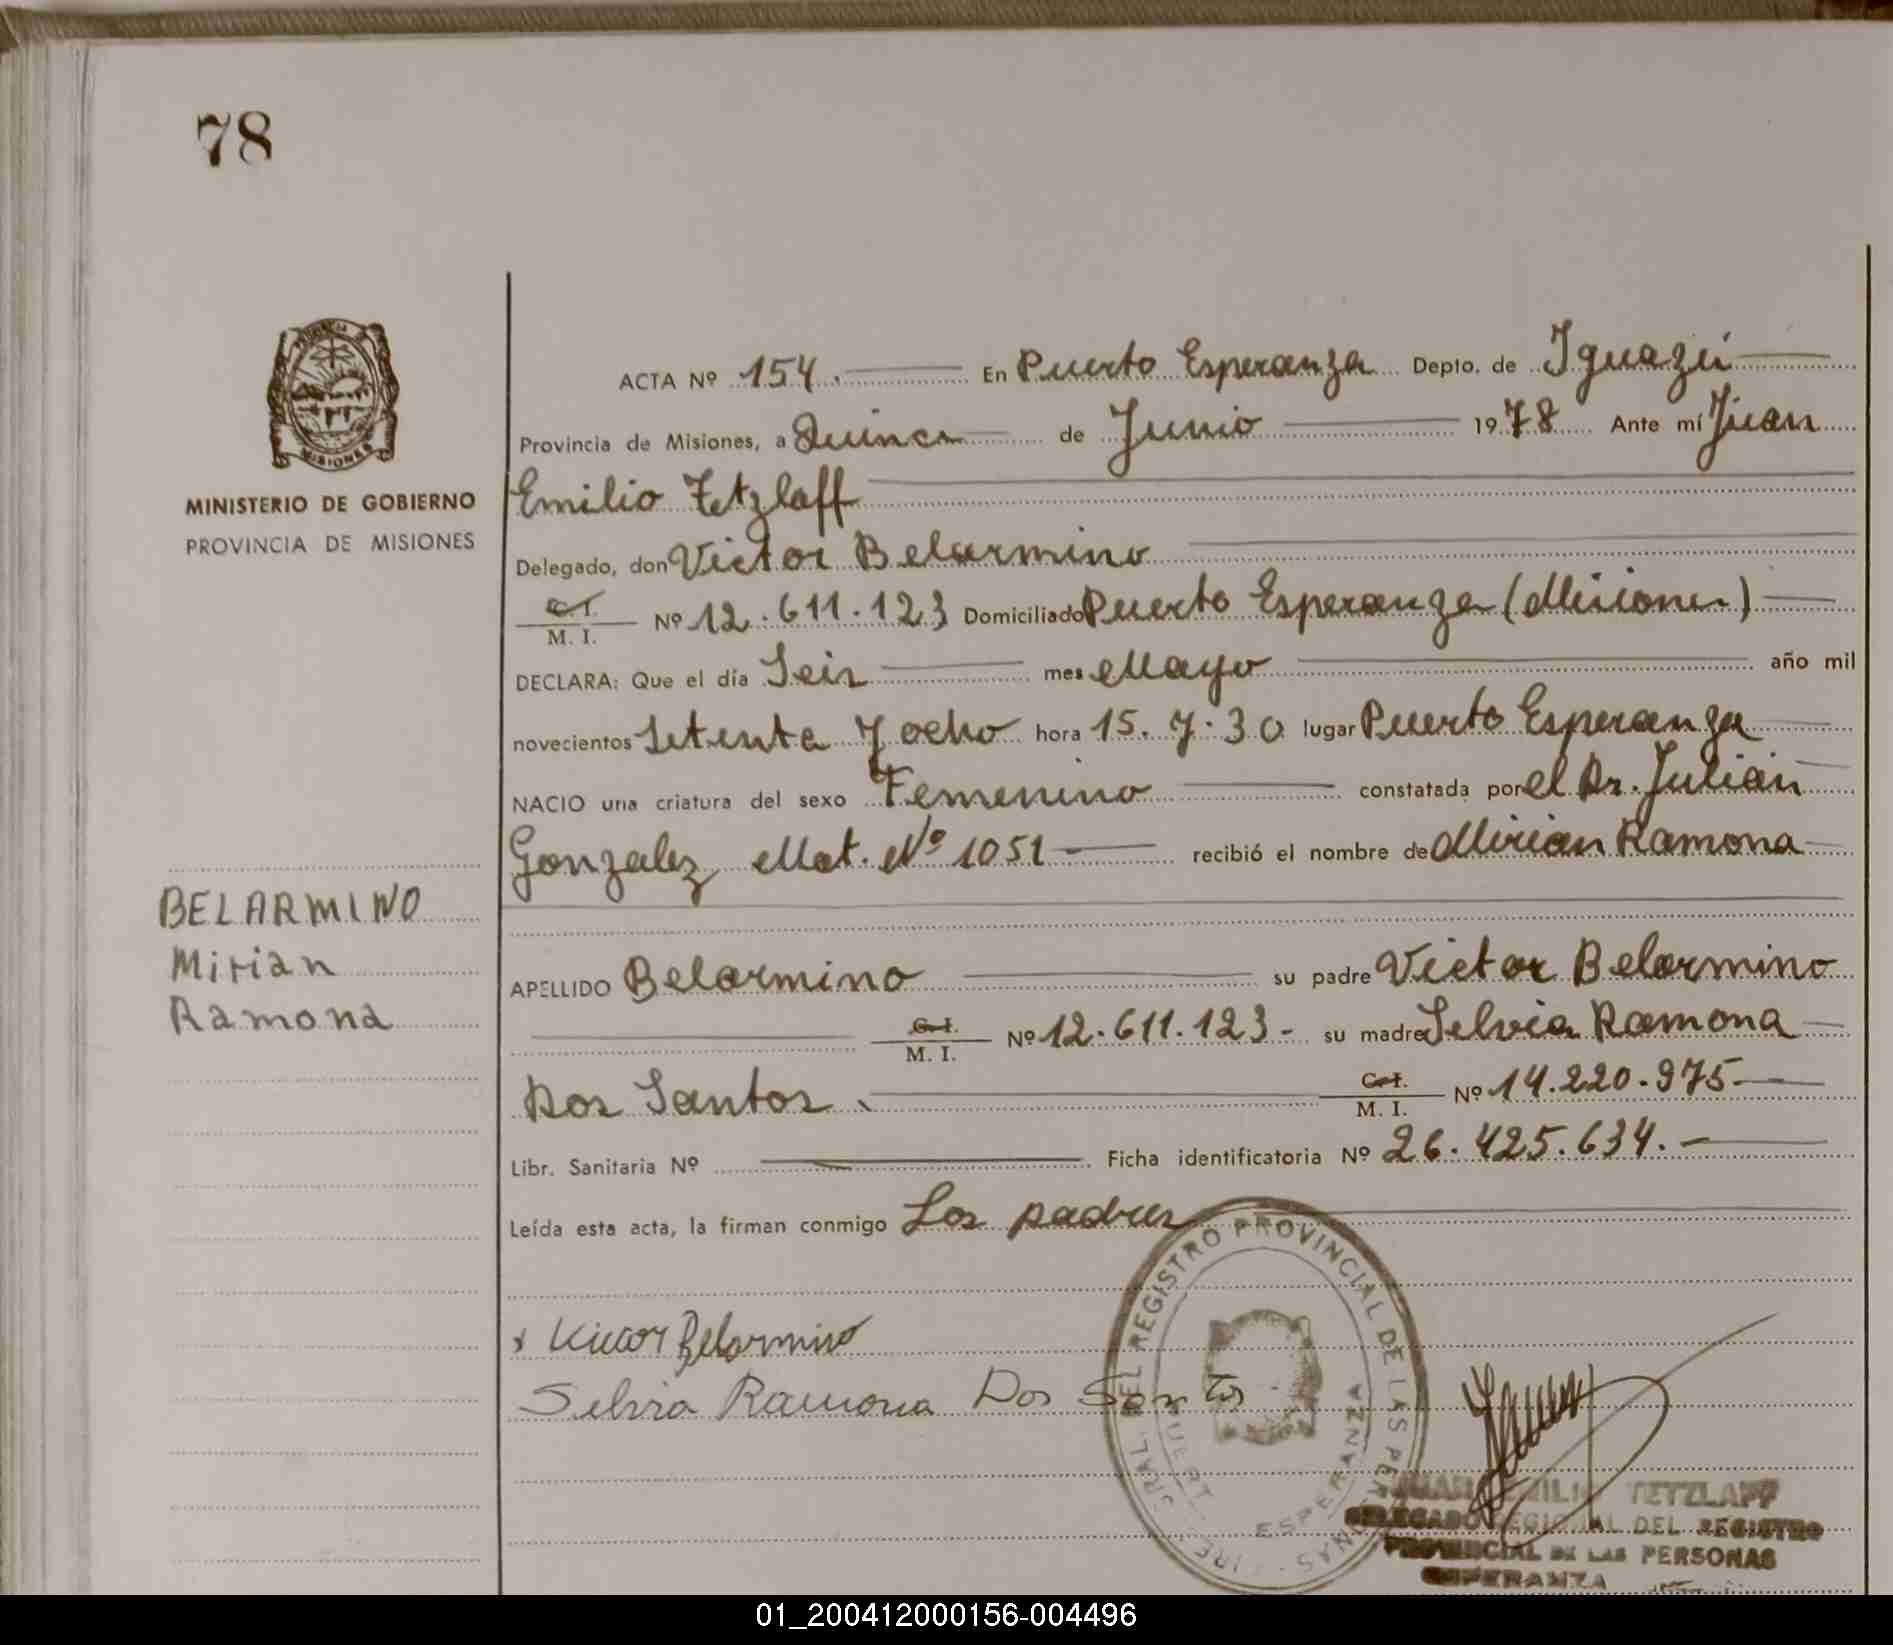 78
MISIONES
MINISTERIO DE GOBIERNO
PROVINCIA DE MISIONES
BELARMINO
Mirian
Ramona
ACTA Nº 154. En Puerto Esperanza Depto. de Iguazú
Provincia de Misiones, a Quince de Junio 1978 Ante mí Juan
Emilio Tetzlaff
Delegado, don Victor Belarmino
C. I.
M. I. Nº 12.611.123 Domiciliado Puerto Esperanza (Misiones)
DECLARA: Que el día Seis mes Mayo año mil
novecientos Setenta y ocho hora 15.7.30 lugar Puerto Esperanza
NACIO una criatura del sexo Femenino constatada por el Dr. Julián
Gonzalez Mat. Nº 1051 recibió el nombre de Mirian Ramona
APELLIDO Belarmino su padre Victor Belarmino
C. I.
M. I. Nº 12.611.123- su madre Selvia Ramona
Dos Santos. C. I.
M. I. Nº 14.220.975-
Libr. Sanitaria Nº Ficha identificatoria Nº 26.425.634.-
Leída esta acta, la firman conmigo Los padres
x Victor Belarmino
Selvia Ramona Dos Santos
GRAL. DEL REGISTRO PROVINCIAL DE LAS PERSONAS
ESPERANZA
JUAN EMILIO TETZLAFF
DELEGADO REGIONAL DEL REGISTRO
PROVINCIAL DE LAS PERSONAS
ESPERANZA
01_200412000156-004496